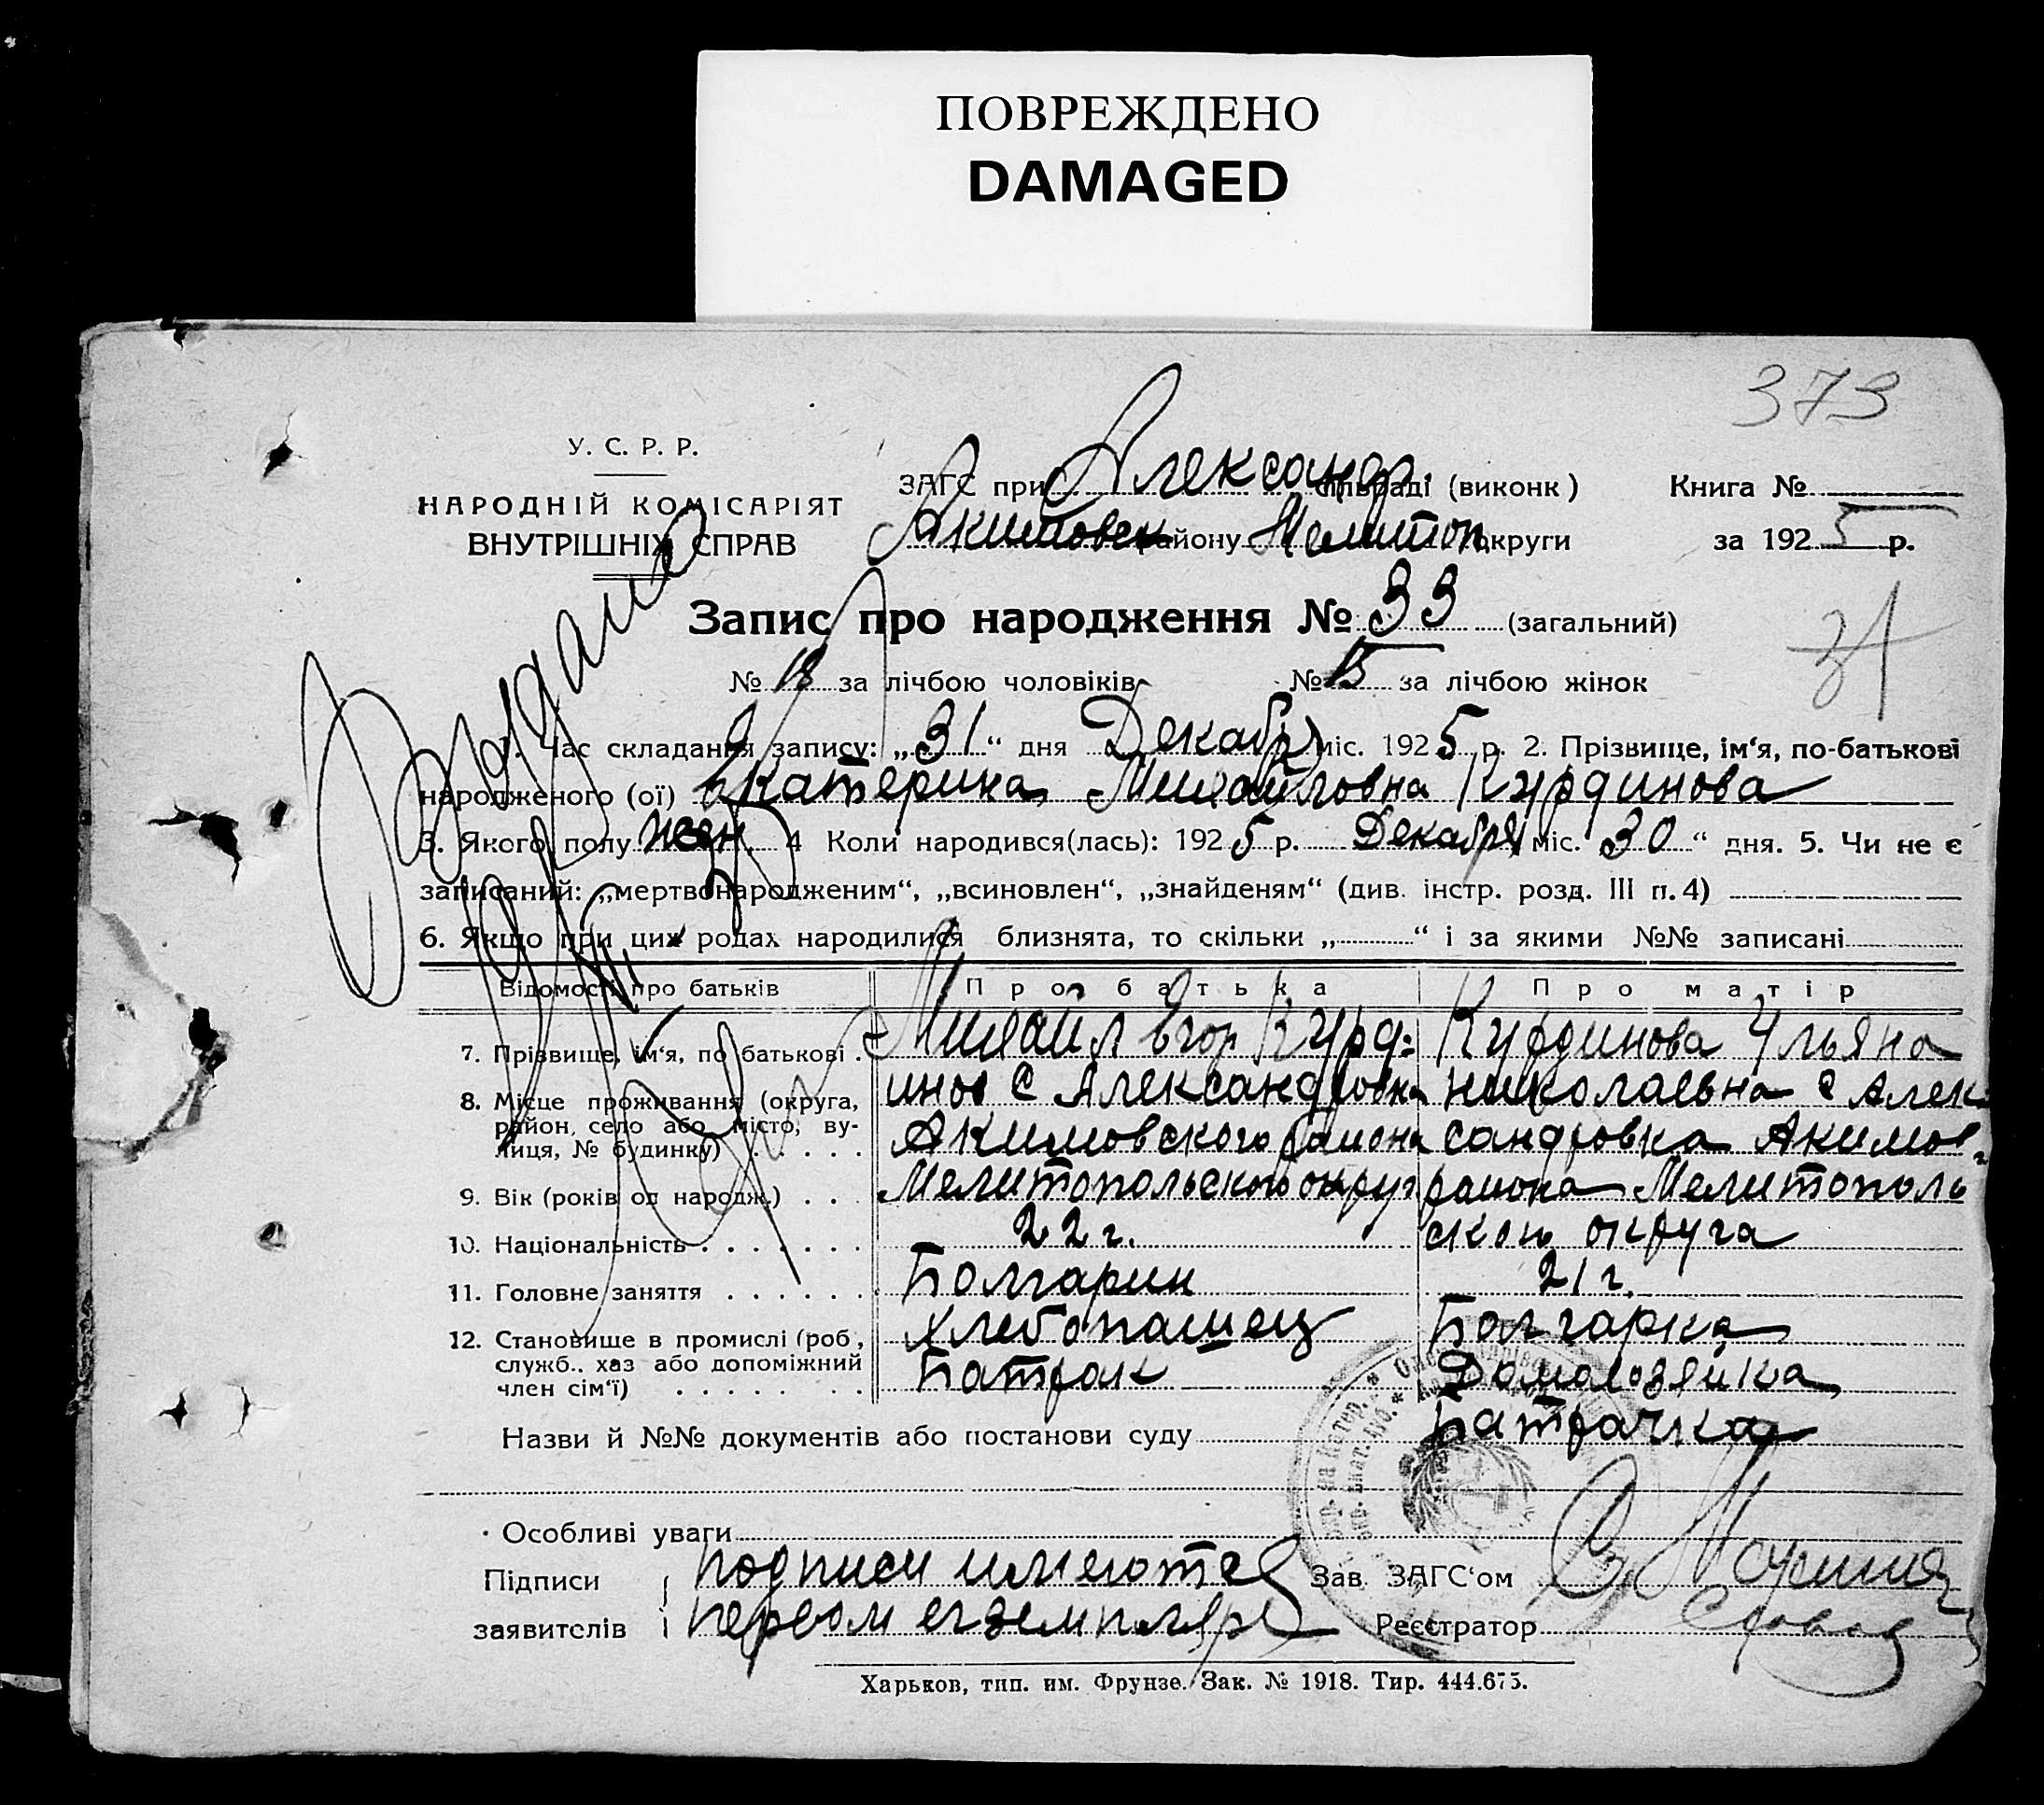 ПОВРЕЖДЕНО
DAMAGED
373
У. С. Р. Р.
НАРОДНІЙ КОМІСАРІЯТ
ВНУТРІШНІХ СПРАВ
ЗАГС при Александр сільраді (виконк)
Книга №
Акимовск району Мелитоп округи
за 1925 р.
Запис про народження № 33 (загальний)
31
№ 18 за лічбою чоловіків № 15 за лічбою жінок
1. Час складання запису: „31“ дня Декабря міс. 1925 р. 2. Прізвище, ім‘я, по-батькові
народженого (ої) Екатерина Михайловна Курдинова
3. Якого полу жен. 4 Коли народився(лась): 1925 р. Декабря міс. 30“ дня. 5. Чи не є
записаний: „мертвонародженим“, „всиновлен“, „знайденям“ (див. інстр. розд. III п. 4)
6. Якщо при цих родах народилися близнята, то скільки „ “ і за якими №№ записані
Выдана
Відомості про батьків
Про батька
Про матір
7. Прізвище, ім‘я, по батькові .
8. Місце проживання (округа,
район, село або місто, ву-
лиця, № будинку) . . . . .
9. Вік (років од народж.) . . .
10. Національність . . . . . . .
11. Головне заняття . . . . . .
12. Становище в промислі (роб,
служб.. хаз або допоміжний
член сім‘ї) . . . . . . . .
Михаил Егор Курд=
инов с Александровка
Акимовского района
Мелитопольского округа
22 г.
Болгарин
Хлебопашец
Батрак
Курдинова Ульяна
Николаевна с Алек
сандровка Акимов.
района Мелитополь
ского округа
21 г.
Болгарка
Домохозяйка
Батрачка
Назви й №№ документів або постанови суду
Особливі уваги
Підписи
заявителів
подписи имеются
первом екземпляре
Зав ЗАГС‘ом
Реєстратор
Харьков, тип. им. Фрунзе. Зак. № 1918. Тир. 444.675.